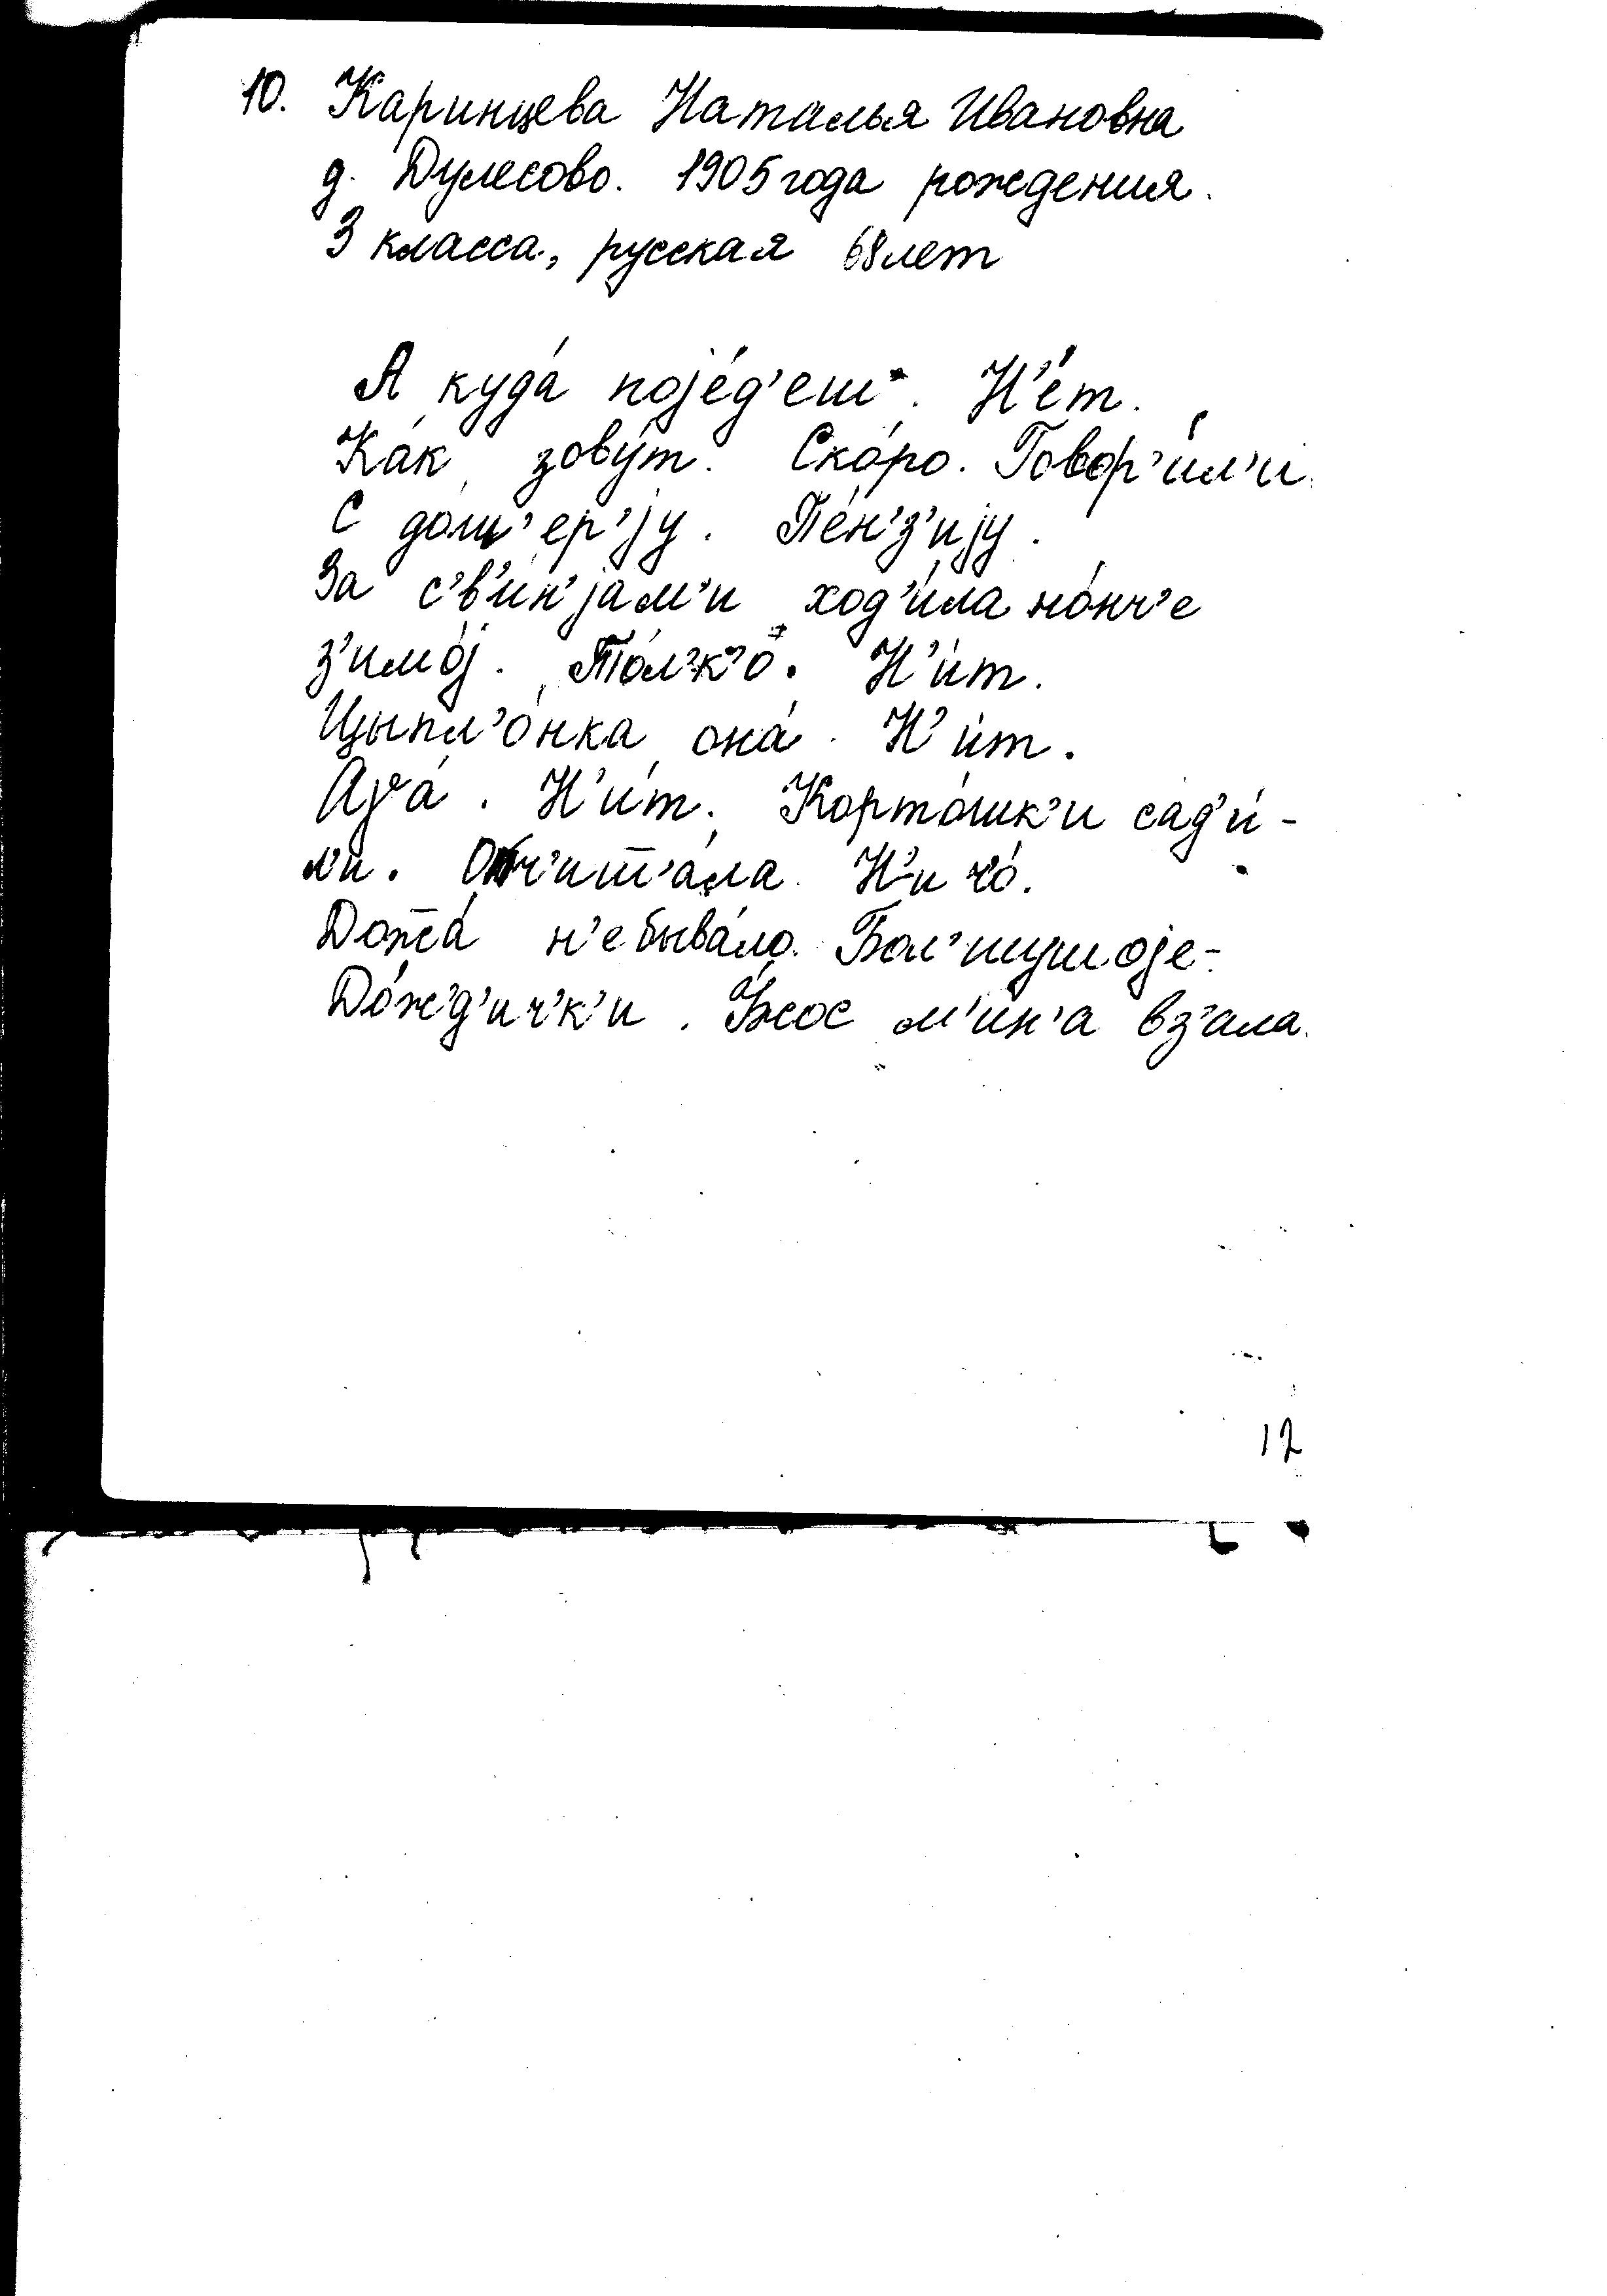 10. Каринцева Наталья Ивановна
д. Дулесово. 1905 года рождения.
3 класса, русская 68 лет
А куда́ појéд'еш. Н'éт.
Ка́к зову́т. Ско́ро. Говор'и́л'и.
С до́ш'ер'jу. Пéн'з'иjу.
За с'в'и́н'jам'и ход'и́ла но́нч'е
з'имо́j. То́л'к'о. Н'и́т.
Цыпл'о́нка она́. Н'и́т.
Ага́. Н'и́т. Корто́шк'и сад'и́-
л'и. Н'и чо́.
Дожа́ н'е быва́ло. Бол'шушоjе-
До́ж'д'ич'к'и. м'ин'а вз'ала.
12